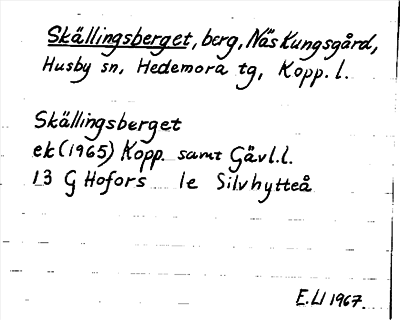 Skällingsberget, berg, Näs Kungsgård,
Husby sn, Hedemora tg, Kopp. l.
Skällingsberget
ek (1965) Kopp. samt Gävl.l.
13 G Hofors 1e Silvhytteå
E.Ll 1967.